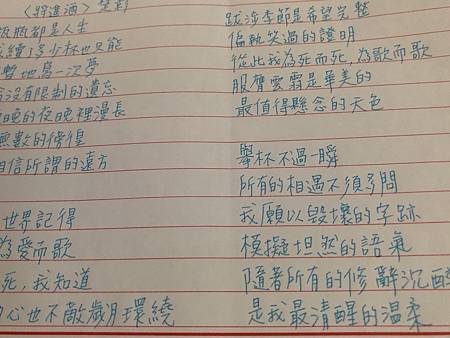 〈將進酒〉
瓶瓶都是人生
續了多少杯也只能
暫地為一次夢
沒有限制的遺忘
晚的夜晚裡漫長
無數的傍徨
相信所謂的遠方
世界記得
為愛而歌
死，我知道
心也不敵歲月環繞
跋涉季節是希望完整
偏執笑過的證明
從此我為死而死，為歌而歌
服膺雲霧是華美的
最值得懸念的天色
舉杯不過一瞬
所有的相遇不須多問
我願以毀壞的字跡
模擬坦然的語氣
隨著所有的修辭沉醉
是我最清醒的溫柔